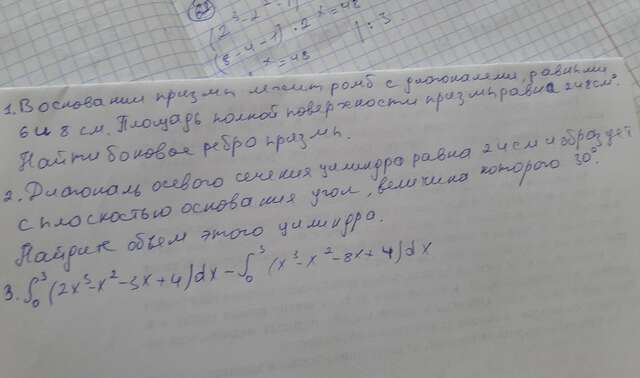 22
(2³-2²-1)
(8-4-1)·2ˣ=48
x=48
1:3.
1. В основании призмы лежит ромб с диагоналями, равными
6 и 8 см. Площадь полной поверхности призмы равна 248см².
Найти боковое ребро призмы.
2. Диагональ осевого сечения цилиндра равна 24 см и образует
с плоскостью основания угол, величина которого 30°.
Найдите объем этого цилиндра.
3. ∫₀³(2x³-x²-3x+4)dx-∫₀³(x³-x²-8x+4)dx